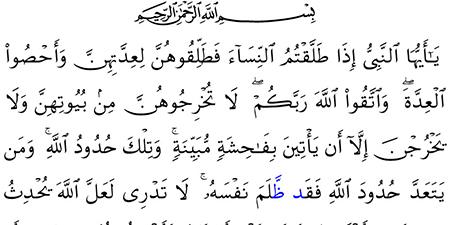 بِسْمِ ٱللَّهِ ٱلرَّحْمَٰنِ ٱلرَّحِيمِ
يَٰٓأَيُّهَا ٱلنَّبِىُّ إِذَا طَلَّقْتُمُ ٱلنِّسَآءَ فَطَلِّقُوهُنَّ لِعِدَّتِهِنَّ وَأَحْصُوا۟
ٱلْعِدَّةَ ۖ وَٱتَّقُوا۟ ٱللَّهَ رَبَّكُمْ ۖ لَا تُخْرِجُوهُنَّ مِنۢ بُيُوتِهِنَّ وَلَا
يَخْرُجْنَ إِلَّآ أَن يَأْتِينَ بِفَٰحِشَةٍ مُّبَيِّنَةٍ ۚ وَتِلْكَ حُدُودُ ٱللَّهِ ۚ وَمَن
يَتَعَدَّ حُدُودَ ٱللَّهِ فَقَد ظَّلَمَ نَفْسَهُۥ ۚ لَا تَدْرِى لَعَلَّ ٱللَّهَ يُحْدِثُ